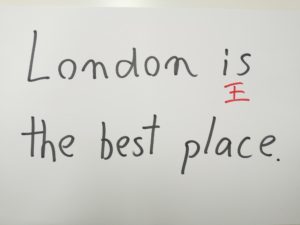 London is
王
the best place.